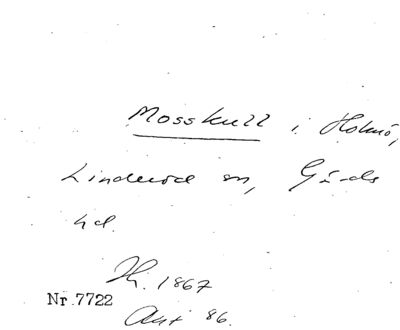 Mosskull i Holmö,
Linderöd sn, Gärds
hd.
H. 1867
Nr 7722
Akt 86.